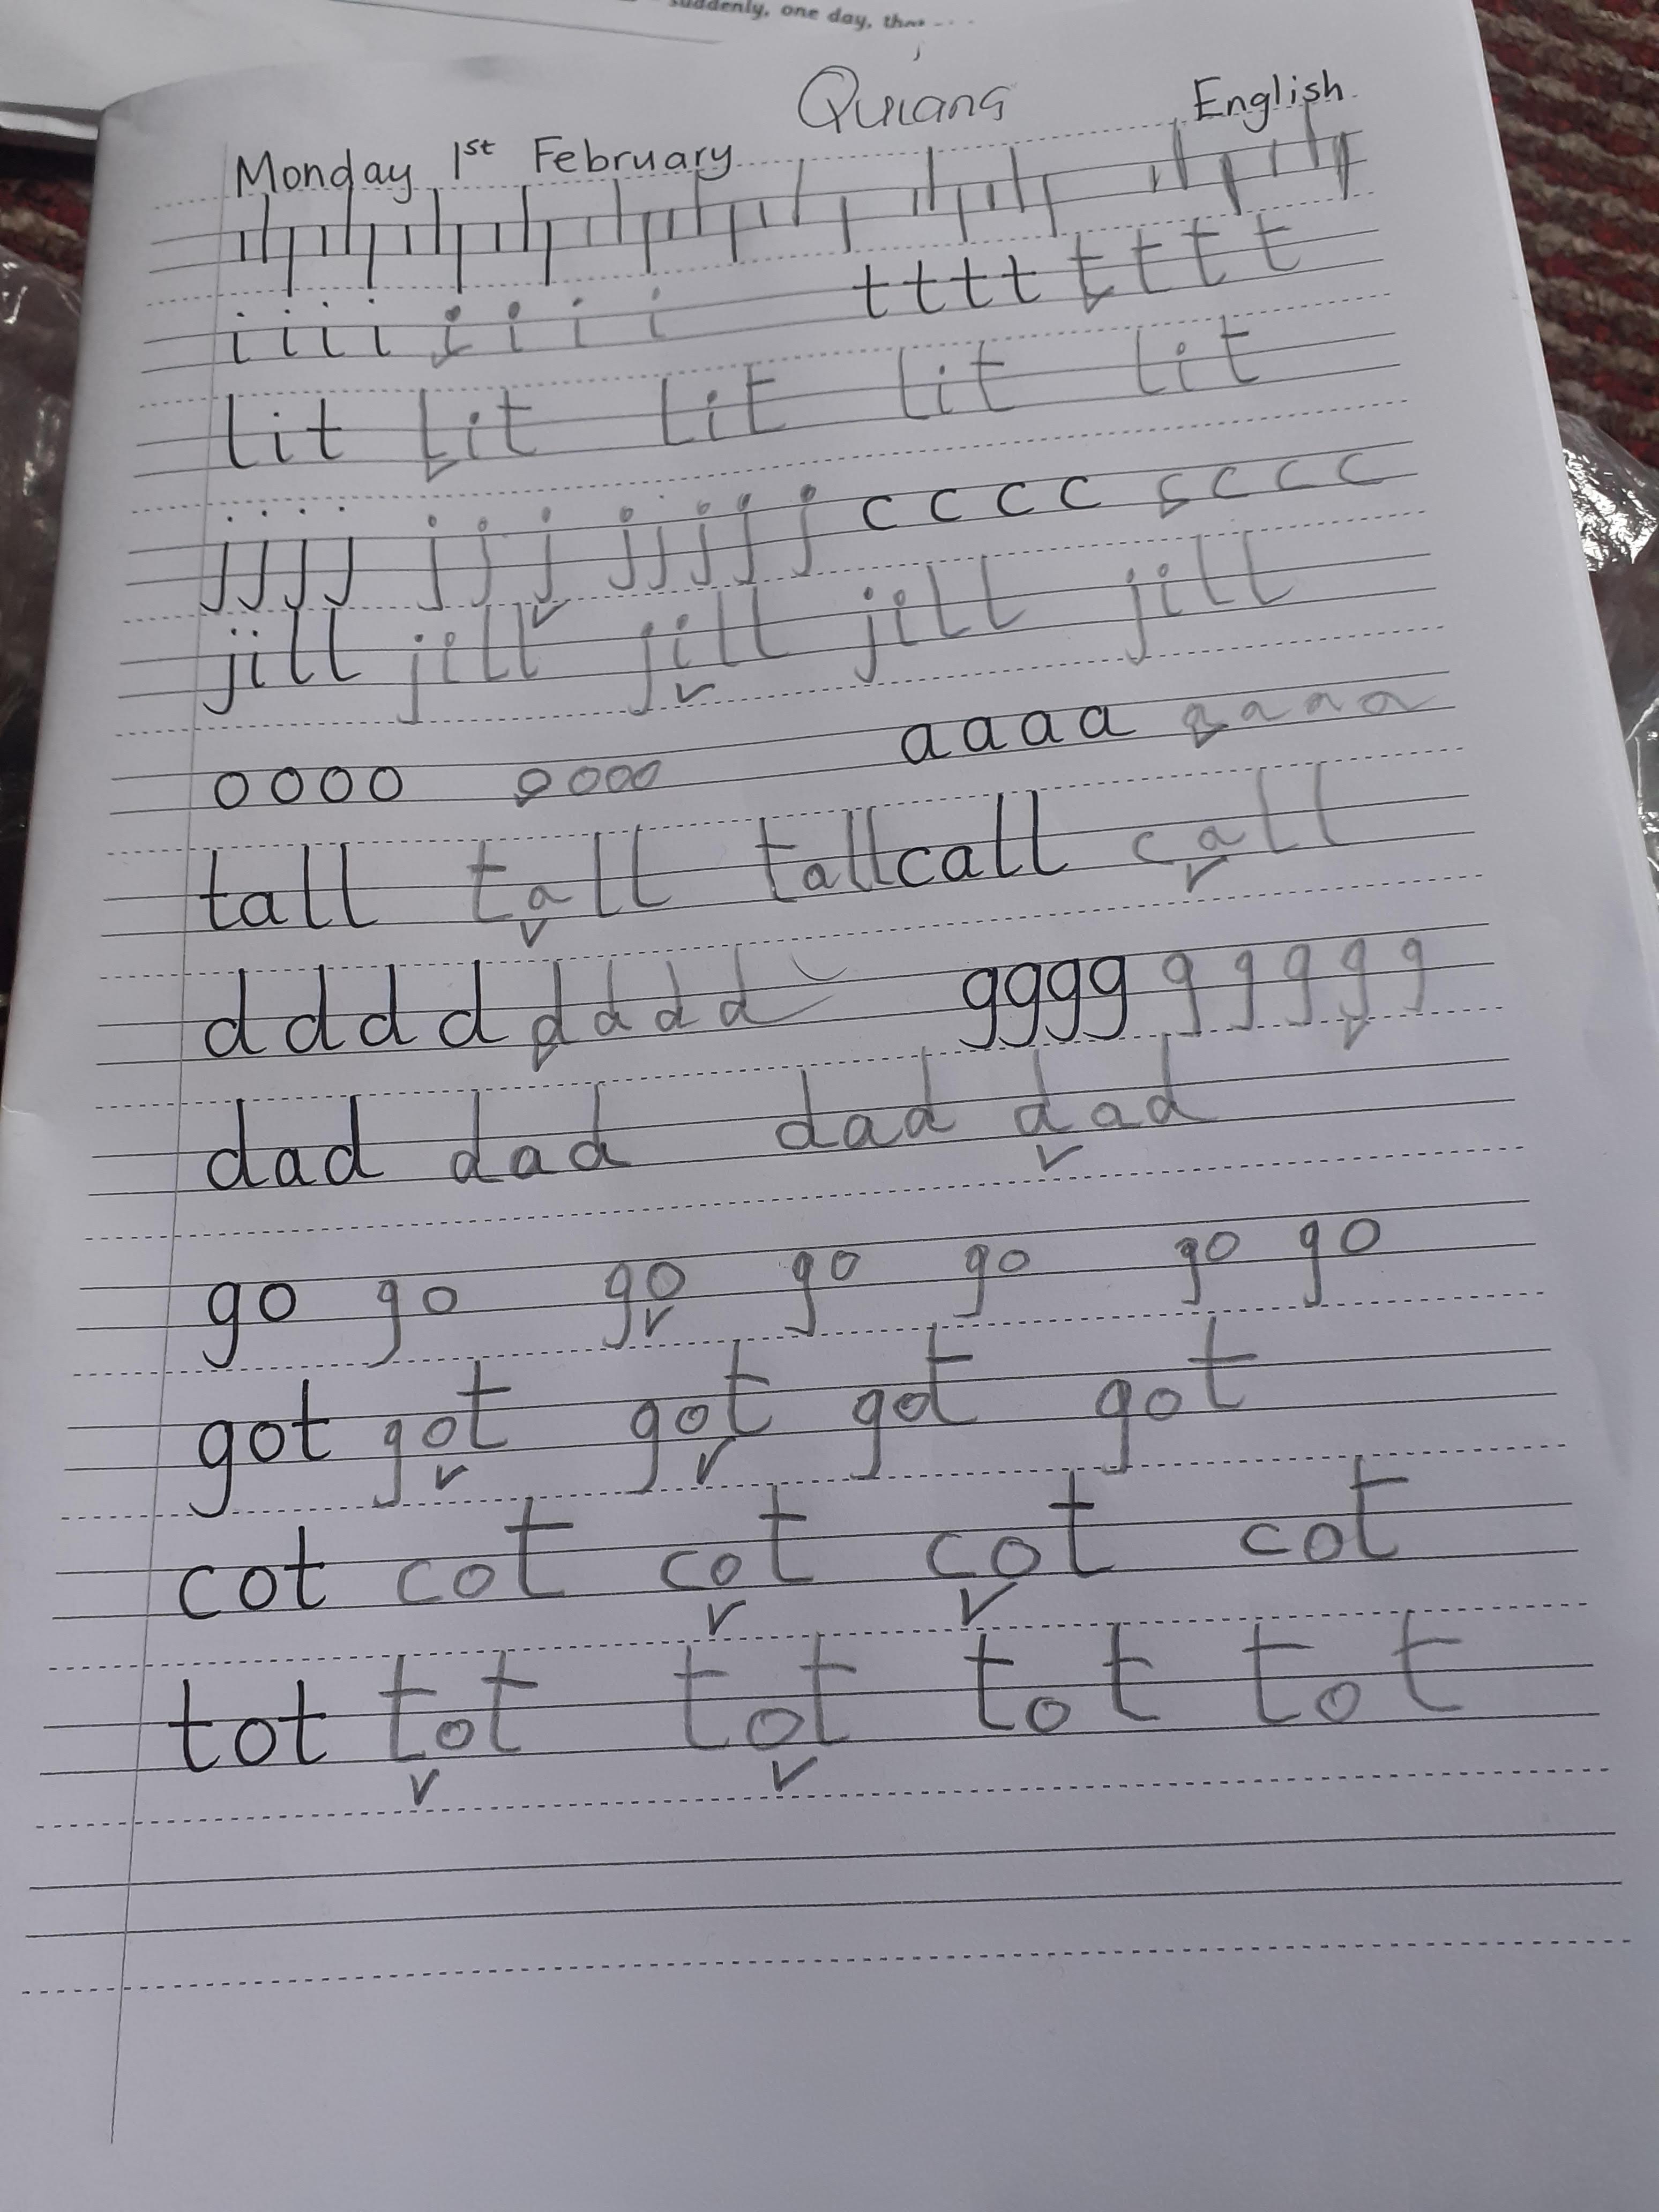 suddenly, one day, the
Quiang
English
Monday 1st February
i i i i i i i i t t t t t t t t
lit lit lit lit lit
j j j j j j j j j j j j c c c c c c c c
jill jill jill jill jill
o o o o o o o o a a a a a a a a
tall tall tall call call
d d d d d d d d g g g g g g g g g
dad dad dad dad
go go go go go go go
got got got got got
cot cot cot cot cot
tot tot tot tot tot